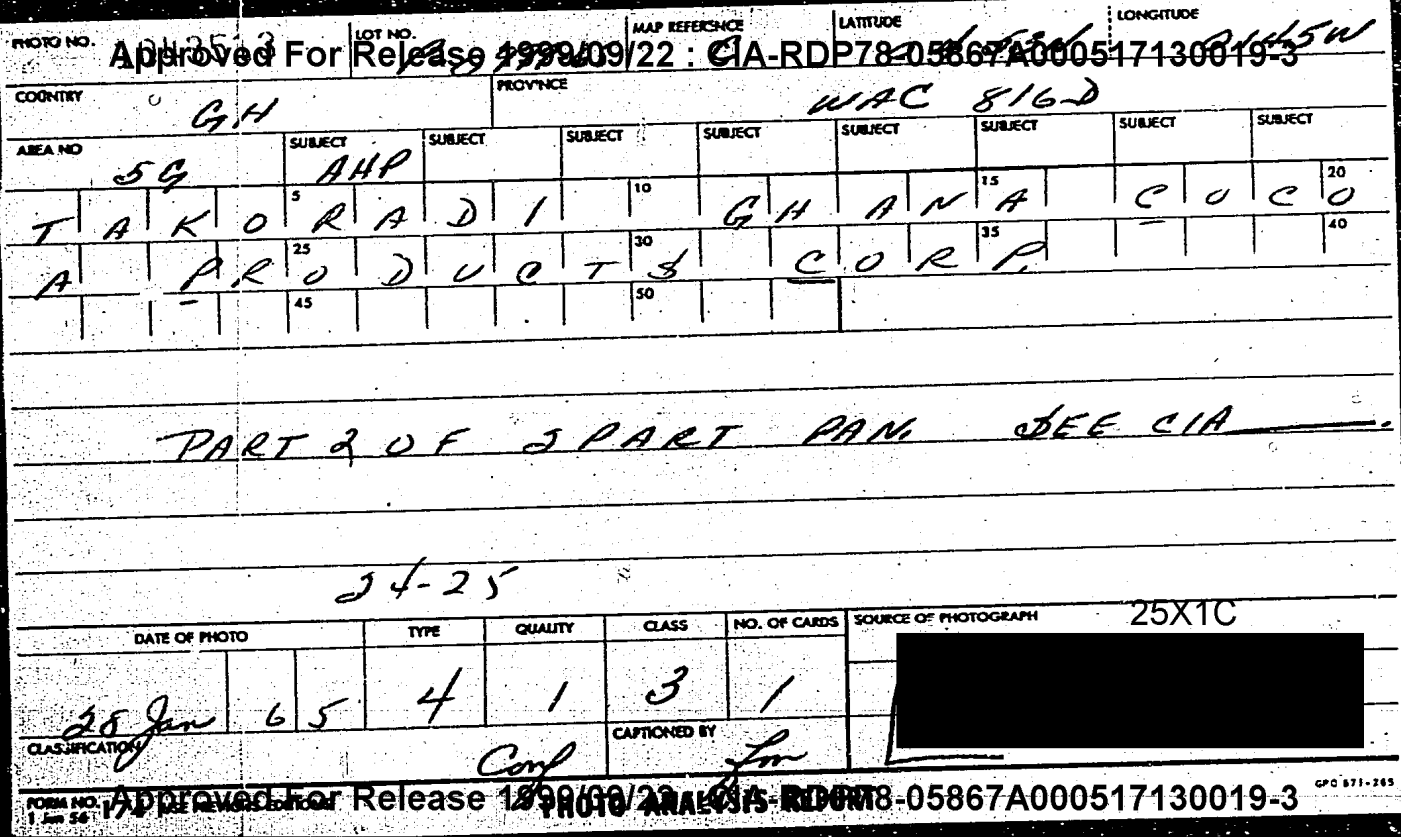 PHOTO NO. LOT NO. MAP REFERENCE LATITUDE LONGITUDE
Approved For Release 1999/09/22 : CIA-RDP78-05867A000517130019-3
COUNTRY GH PROVINCE WAC 816D
AREA NO 5G SUBJECT AHP SUBJECT SUBJECT SUBJECT SUBJECT SUBJECT SUBJECT SUBJECT
5 10 15 20
TAKORADI GHANA COCO
25 30 35 40
A PRODUCTS CORP.
45 50
PART 2 OF 2 PART PAN. SEE CIA
24-25
DATE OF PHOTO TYPE QUALITY CLASS NO. OF CARDS SOURCE OF PHOTOGRAPH 25X1C
28 Jan 65 4 1 3 1
CLASSIFICATION Conf CAPTIONED BY
FORM NO. PHOTO ANALYSIS REPORT GPO 871-265
1 Jun 56
Approved For Release 1999/09/22 : CIA-RDP78-05867A000517130019-3